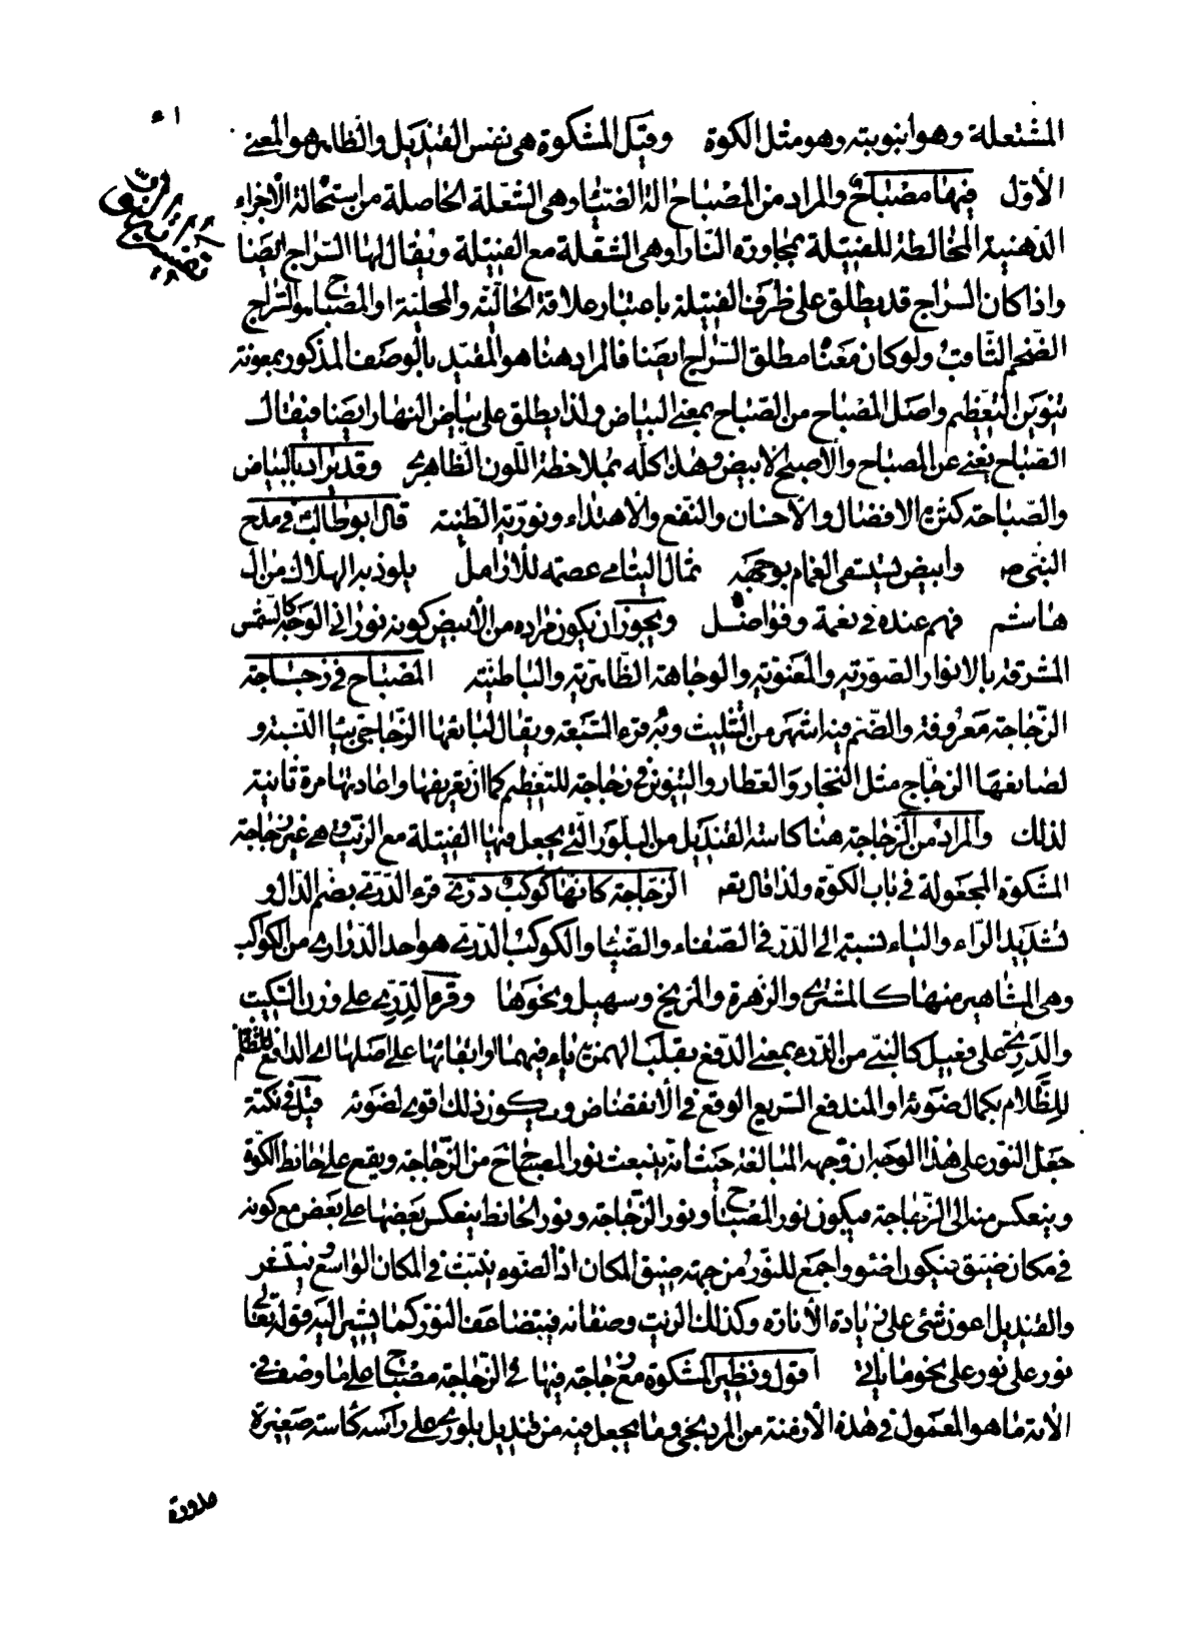 المشتعلة وهو انبوبته وهو مثل الكوة وقيل المشكوة هى نفس القنديل والظاهر هو المعنى
الأول فيها مصباح والمراد من المصباح الة الضياء وهى الشعلة الحاصلة من استحالة الأجزاء
الدهنية المخالطة للفتيلة بمجاورة النار او هى الشعلة مع الفتيلة ويقال لها السراج ايضا
واذا كان السراج قد يطلق على ظرف الفتيلة باعتبار علاقة الحالّية والمحلية او المصباح هو السراج
الضخم الثاقب ولو كان معنا مطلق السراج ايضا فالمراد هنا هو المقيد بالوصف المذكور بمعونة
تنوين التعظيم واصل المصباح من الصباح بمعنى البياض ولذا يطلق على بياض النهار ايضا فيقال
الصباح يغنى عن المصباح والأصبح الابيض وهذا كله بملاحظة اللون الظاهرى وقد يراد بالبياض
والصباحة كثرة الافضال والاحسان والنفع والأهتداء ونورية الطينة قال ابو طالب فى مدح
النبى ص وابيض يستسقى الغمام بوجهه ثمال اليتامى عصمة للأرامل يلوذ به الهلاك من ال
هاشم فهم عنده فى نعمة وفواضل ويجوز ان يكون مراده من الأبيض كونه نورانى الوجه كالشمس
المشرقة بالانوار الصورية والمعنوية والوجاهة الظاهرية والباطنية المصباح فى زجاجة
الزجاجة معروفة والضم فيه اشهر من التثليث وبه قرء السبعة ويقال لبائعها الزجاجى بياء النسبة و
لصانعها الزجاج مثل النجار والعطار والتنوين فى زجاجة للتعظيم كما ان تعريفها واعادتها مرة ثانية
لذلك والمراد من الزجاجة هنا كاسة القنديل من البلور التى يجعل فيها الفتيلة مع الزيت وهى غير زجاجة
المشكوة المجعولة فى باب الكوة ولذا قال تع الزجاجة كانها كوكب درّى قرء الدرّى بضم الدال و
تشديد الراء والياء نسبة الى الدر فى الصفاء والضياء والكوكب الدرى هو واحد الدرارى من الكواكب
وهى المشاهير منها كالمشترى والزهرة والمريخ وسهيل ونحوها وقرء الدِرّى على وزن السكيت
والدرىّ على فعيل كالنبى من الدرء بمعنى الدفع بقلب الهمزة ياء فيهما او ابقائها على اصلها اى الدافع
للظلام بكمال ضوئه او المندفع السريع الوقع فى الأنقضاض ويكون ذلك اقوى لضوئه قيل فى نكتة
جعل النور على هذا الوجه ان وجهه المبالغة حيث انه ينبعث نور المصباح من الزجاجة ويقع على حائط الكوة
وينعكس منه الى الزجاجة فيكون نور المصباح ونور الزجاجة ونور الحائط ينعكس بعضها على بعض مع كونه
فى مكان ضيق فيكون اضوء واجمع للنور من جهة ضيق المكان اذ الضوء ينبث فى المكان الواسع وينتشر
والقنديل اعون شئ على زيادة الأنارة وكذلك الزيت وصفائه فيتضاعف النور كما يشير اليه قوله تعالى
نور على نور على نحو ما يأتى اقول ونظير المشكوة مع زجاجة فيها فى الزجاجة مصباح على ما وصف فى
الاية ما هو المعمول فى هذه الأزمنة من المردنجى وما يجعل فيه من قنديل بلورى على رأسه كاسة صغيرة
مدورة